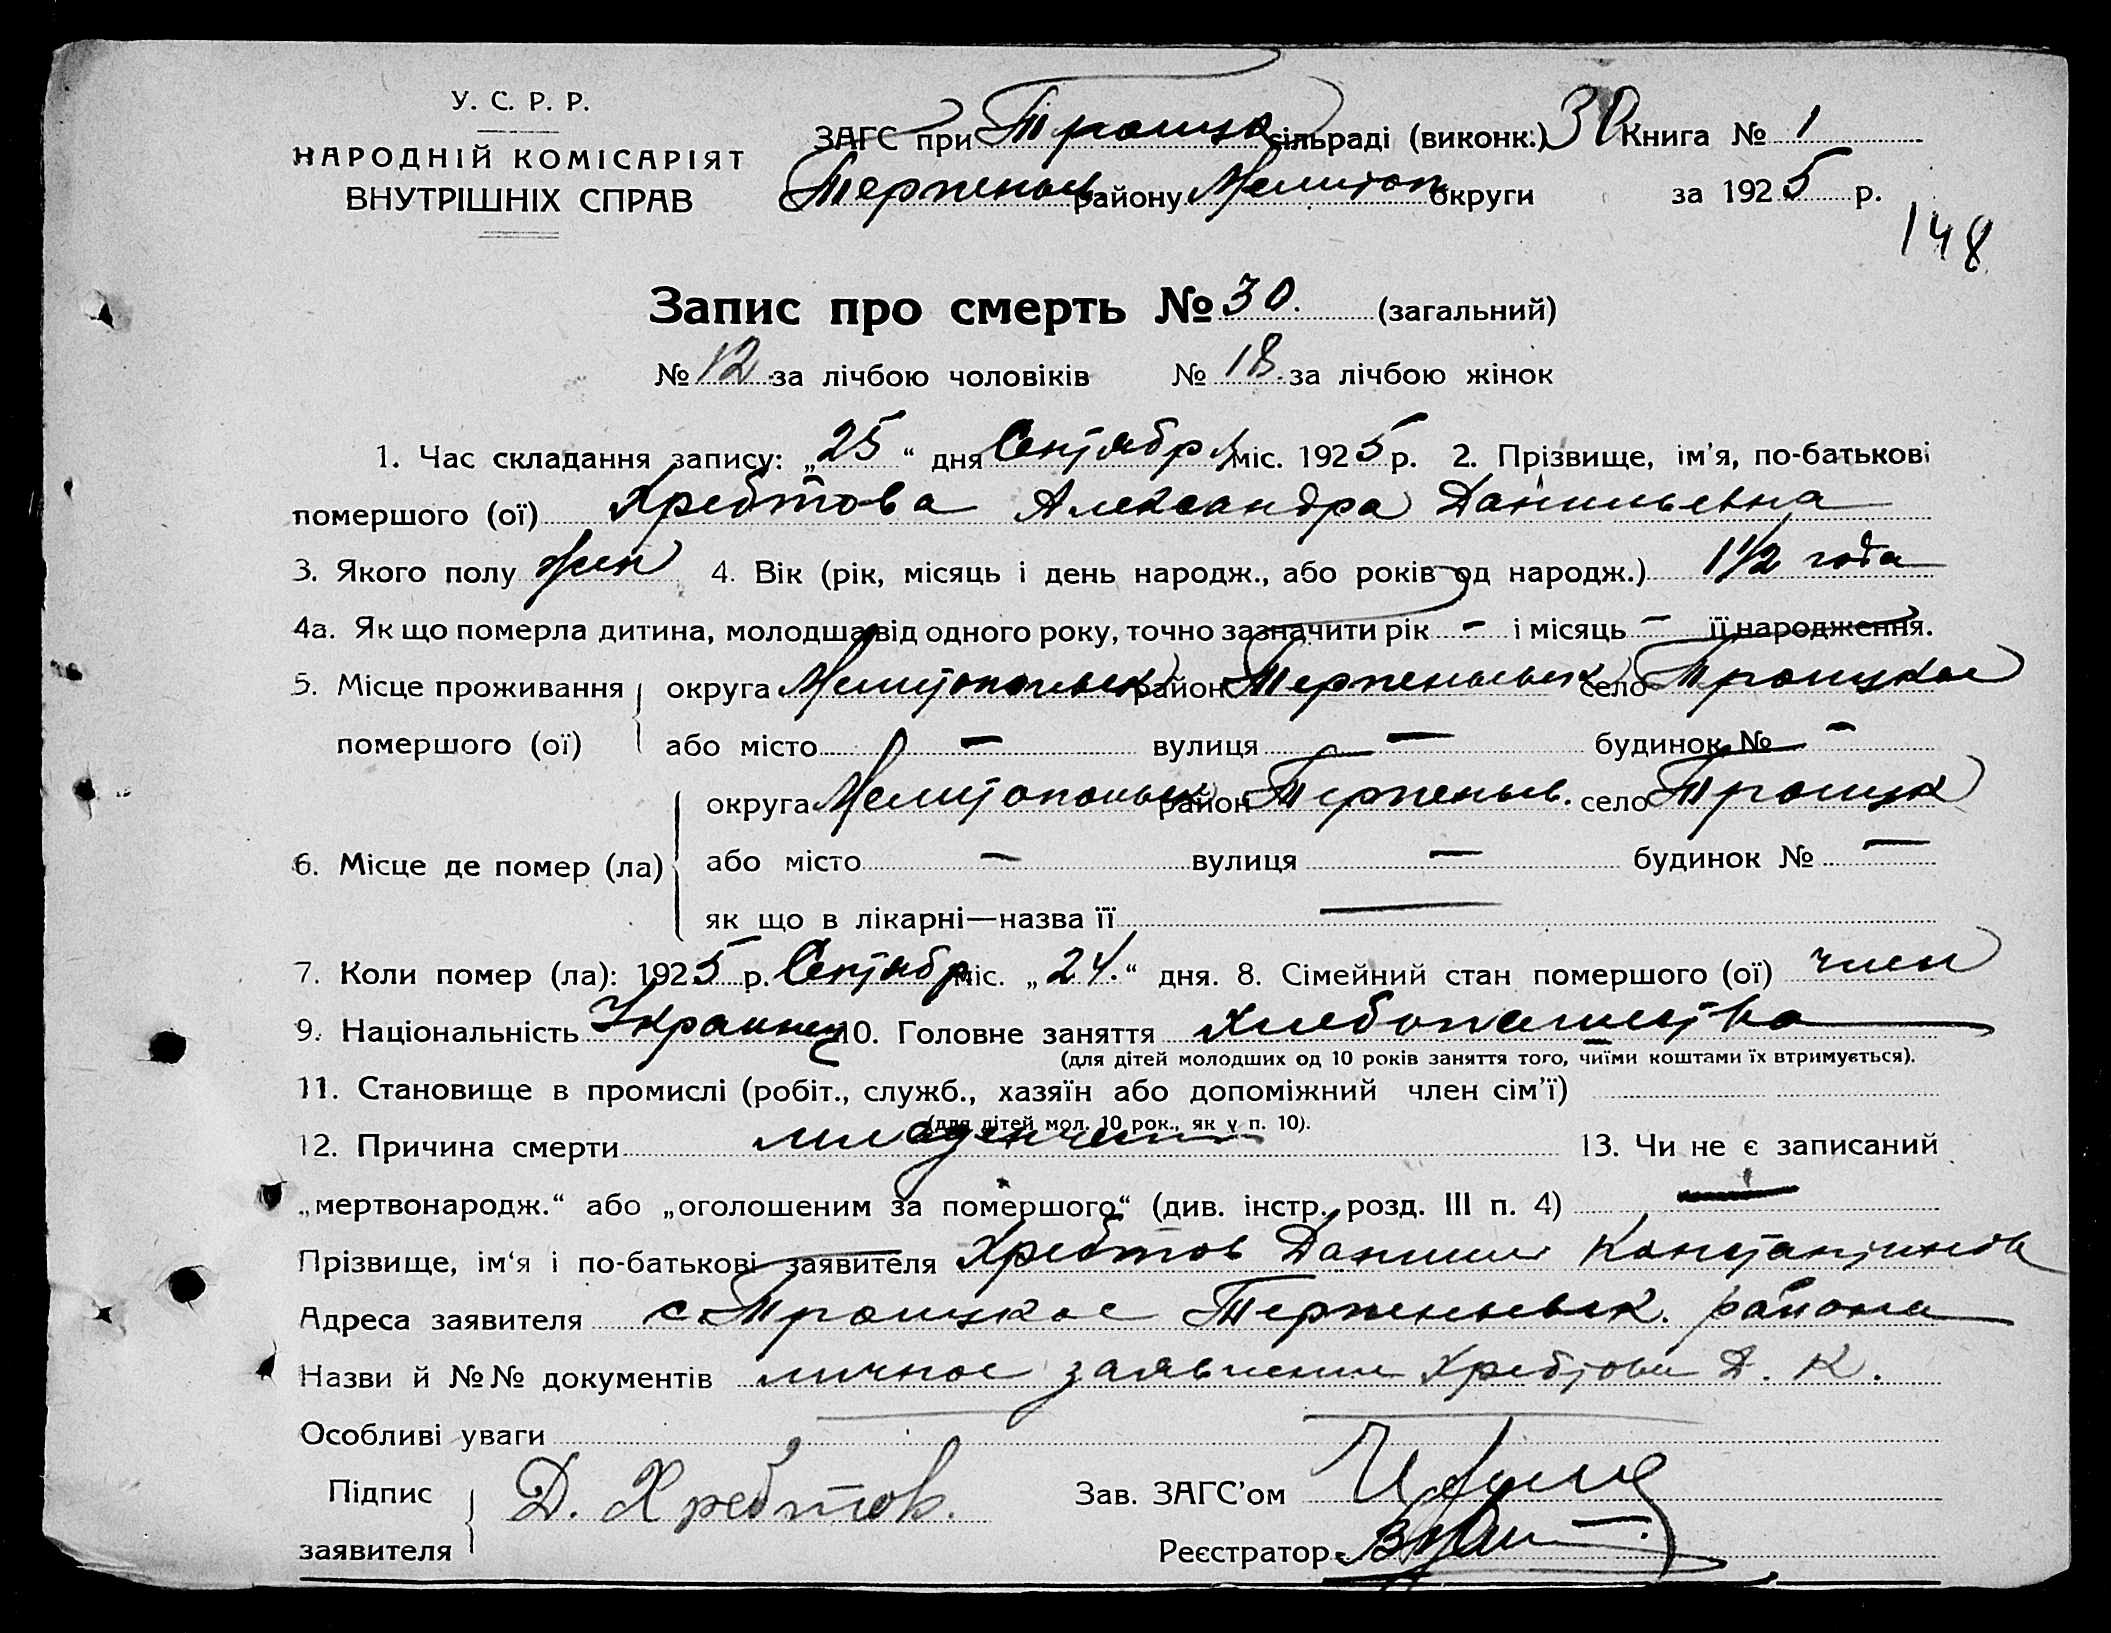 У. С. Р. Р.
НАРОДНІЙ КОМІСАРІЯТ
ВНУТРІШНІХ СПРАВ
ЗАГС при Троицк сільраді (виконк.) 30 Книга № 1
Терпеньев району Мелитоп округи за 1925 р.
148
Запис про смерть № 30. (загальний)
№ 12 за лічбою чоловіків № 18 за лічбою жінок
1. Час складання запису: „25“ дня Сентября міс. 1925 р. 2. Прізвище, ім'я, по-батькові
помершого (ої) Хребтова Александра Данильевна
3. Якого полу жен 4. Вік (рік, місяць і день народж., або років од народж.) 1 1/2 года
4а. Як що померла дитина, молодша від одного року, точно зазначити рік — і місяць — її народження.
5. Місце проживання округа Мелитопольск район Терпеньевск село Троицкое
помершого (ої) або місто — вулиця — будинок № —
округа Мелитопольск район Терпеньев. село Троицк
6. Місце де помер (ла) або місто — вулиця — будинок № —
як що в лікарні—назва її —
7. Коли помер (ла): 1925 р. Сентябр міс. „24.“ дня. 8. Сімейний стан помершого (ої) член
9. Національність Украинец 10. Головне заняття хлебопашество
(для дітей молодших од 10 років заняття того, чиїми коштами їх втримується).
11. Становище в промислі (робіт., служб., хазяїн або допоміжний член сім'ї)
(для дітей мол. 10 рок., як у п. 10).
12. Причина смерти младенческ 13. Чи не є записаний
„мертвонародж.“ або „оголошеним за помершого“ (див. інстр. розд. III п. 4) —
Прізвище, ім'я і по-батькові заявителя Хребтов Даниил Константинов
Адреса заявителя с. Троицкое Терпеньевск. района
Назви й №№ документів личное заявление Хребтова Д. К.
Особливі уваги
Підпис Д. Хребтов. Зав. ЗАГС'ом
заявителя Реєстратор